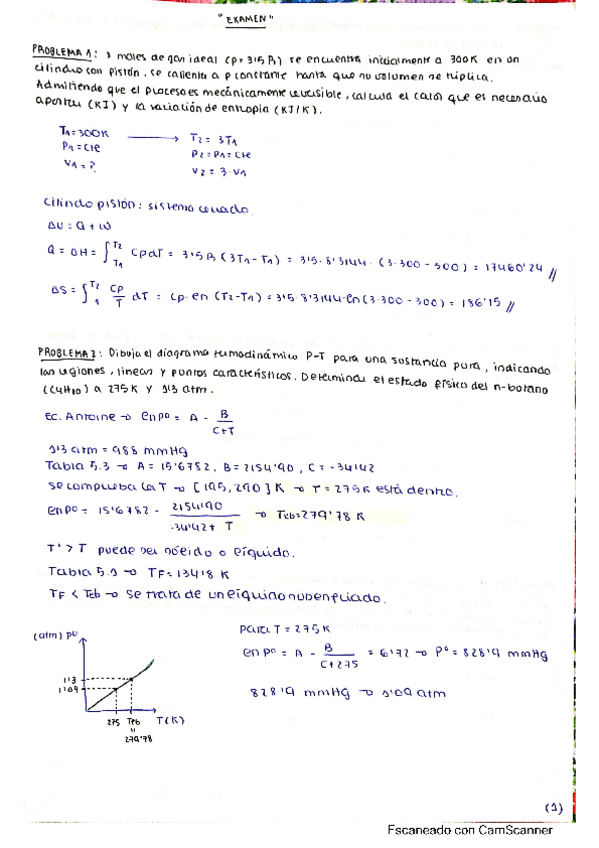 "EXAMEN"
PROBLEMA 1: 3 moles de gas ideal (cp = 3'5 R) se encuentra inicialmente a 300K en un
cilindro con pistón. se calienta a p constante hasta que su volumen se triplica.
Admitiendo que el proceso es mecánicamente reversible, calcula el calor que es necesario
aportar (KJ) y la variación de entropía (KJ/K).
T1 = 300K → T2 = 3T1
P1 = cte P2 = P1 = cte
V1 = ? V2 = 3·V1
Cilindro pistón: sistema cerrado.
ΔU = Q + W
Q = ΔH = ∫T1 T2 cp dT = 3'5 R (3T1 - T1) = 3'5 · 8'3144 · (3·300 - 300) = 17460'24 //
ΔS = ∫1 T2 cp/T dT = cp · ln (T2-T1) = 3'5 · 8'3144 · ln (3·300 - 300) = 186'15 //
PROBLEMA 2: Dibuja el diagrama termodinámico P-T para una sustancia pura, indicando
las regiones, líneas y puntos característicos. Determina el estado físico del n-butano
(C4H10) a 275K y 1'3 atm.
Ec. Antoine → ln pº = A - B/(C+T)
1'3 atm = 988 mmHg
Tabla 5.3 → A = 15'6782, B = 2154'90, C = -34'42
Se comprueba la T → [195, 290] K → T = 275K está dentro.
ln pº = 15'6782 - 2154'90/(-34'42 + T) → Teb = 279'78 K
T' > T puede ser sólido o líquido.
Tabla 5.1 → TF = 134'8 K
TF < Teb → se trata de un líquido subenfriado.
(atm) pº
1'3
1'09
275 Teb T(K)
"
279'78
Para T = 275K
ln pº = A - B/(C+275) = 6'72 → pº = 828'9 mmHg
828'9 mmHg → 1'09 atm
(1)
Escaneado con CamScanner